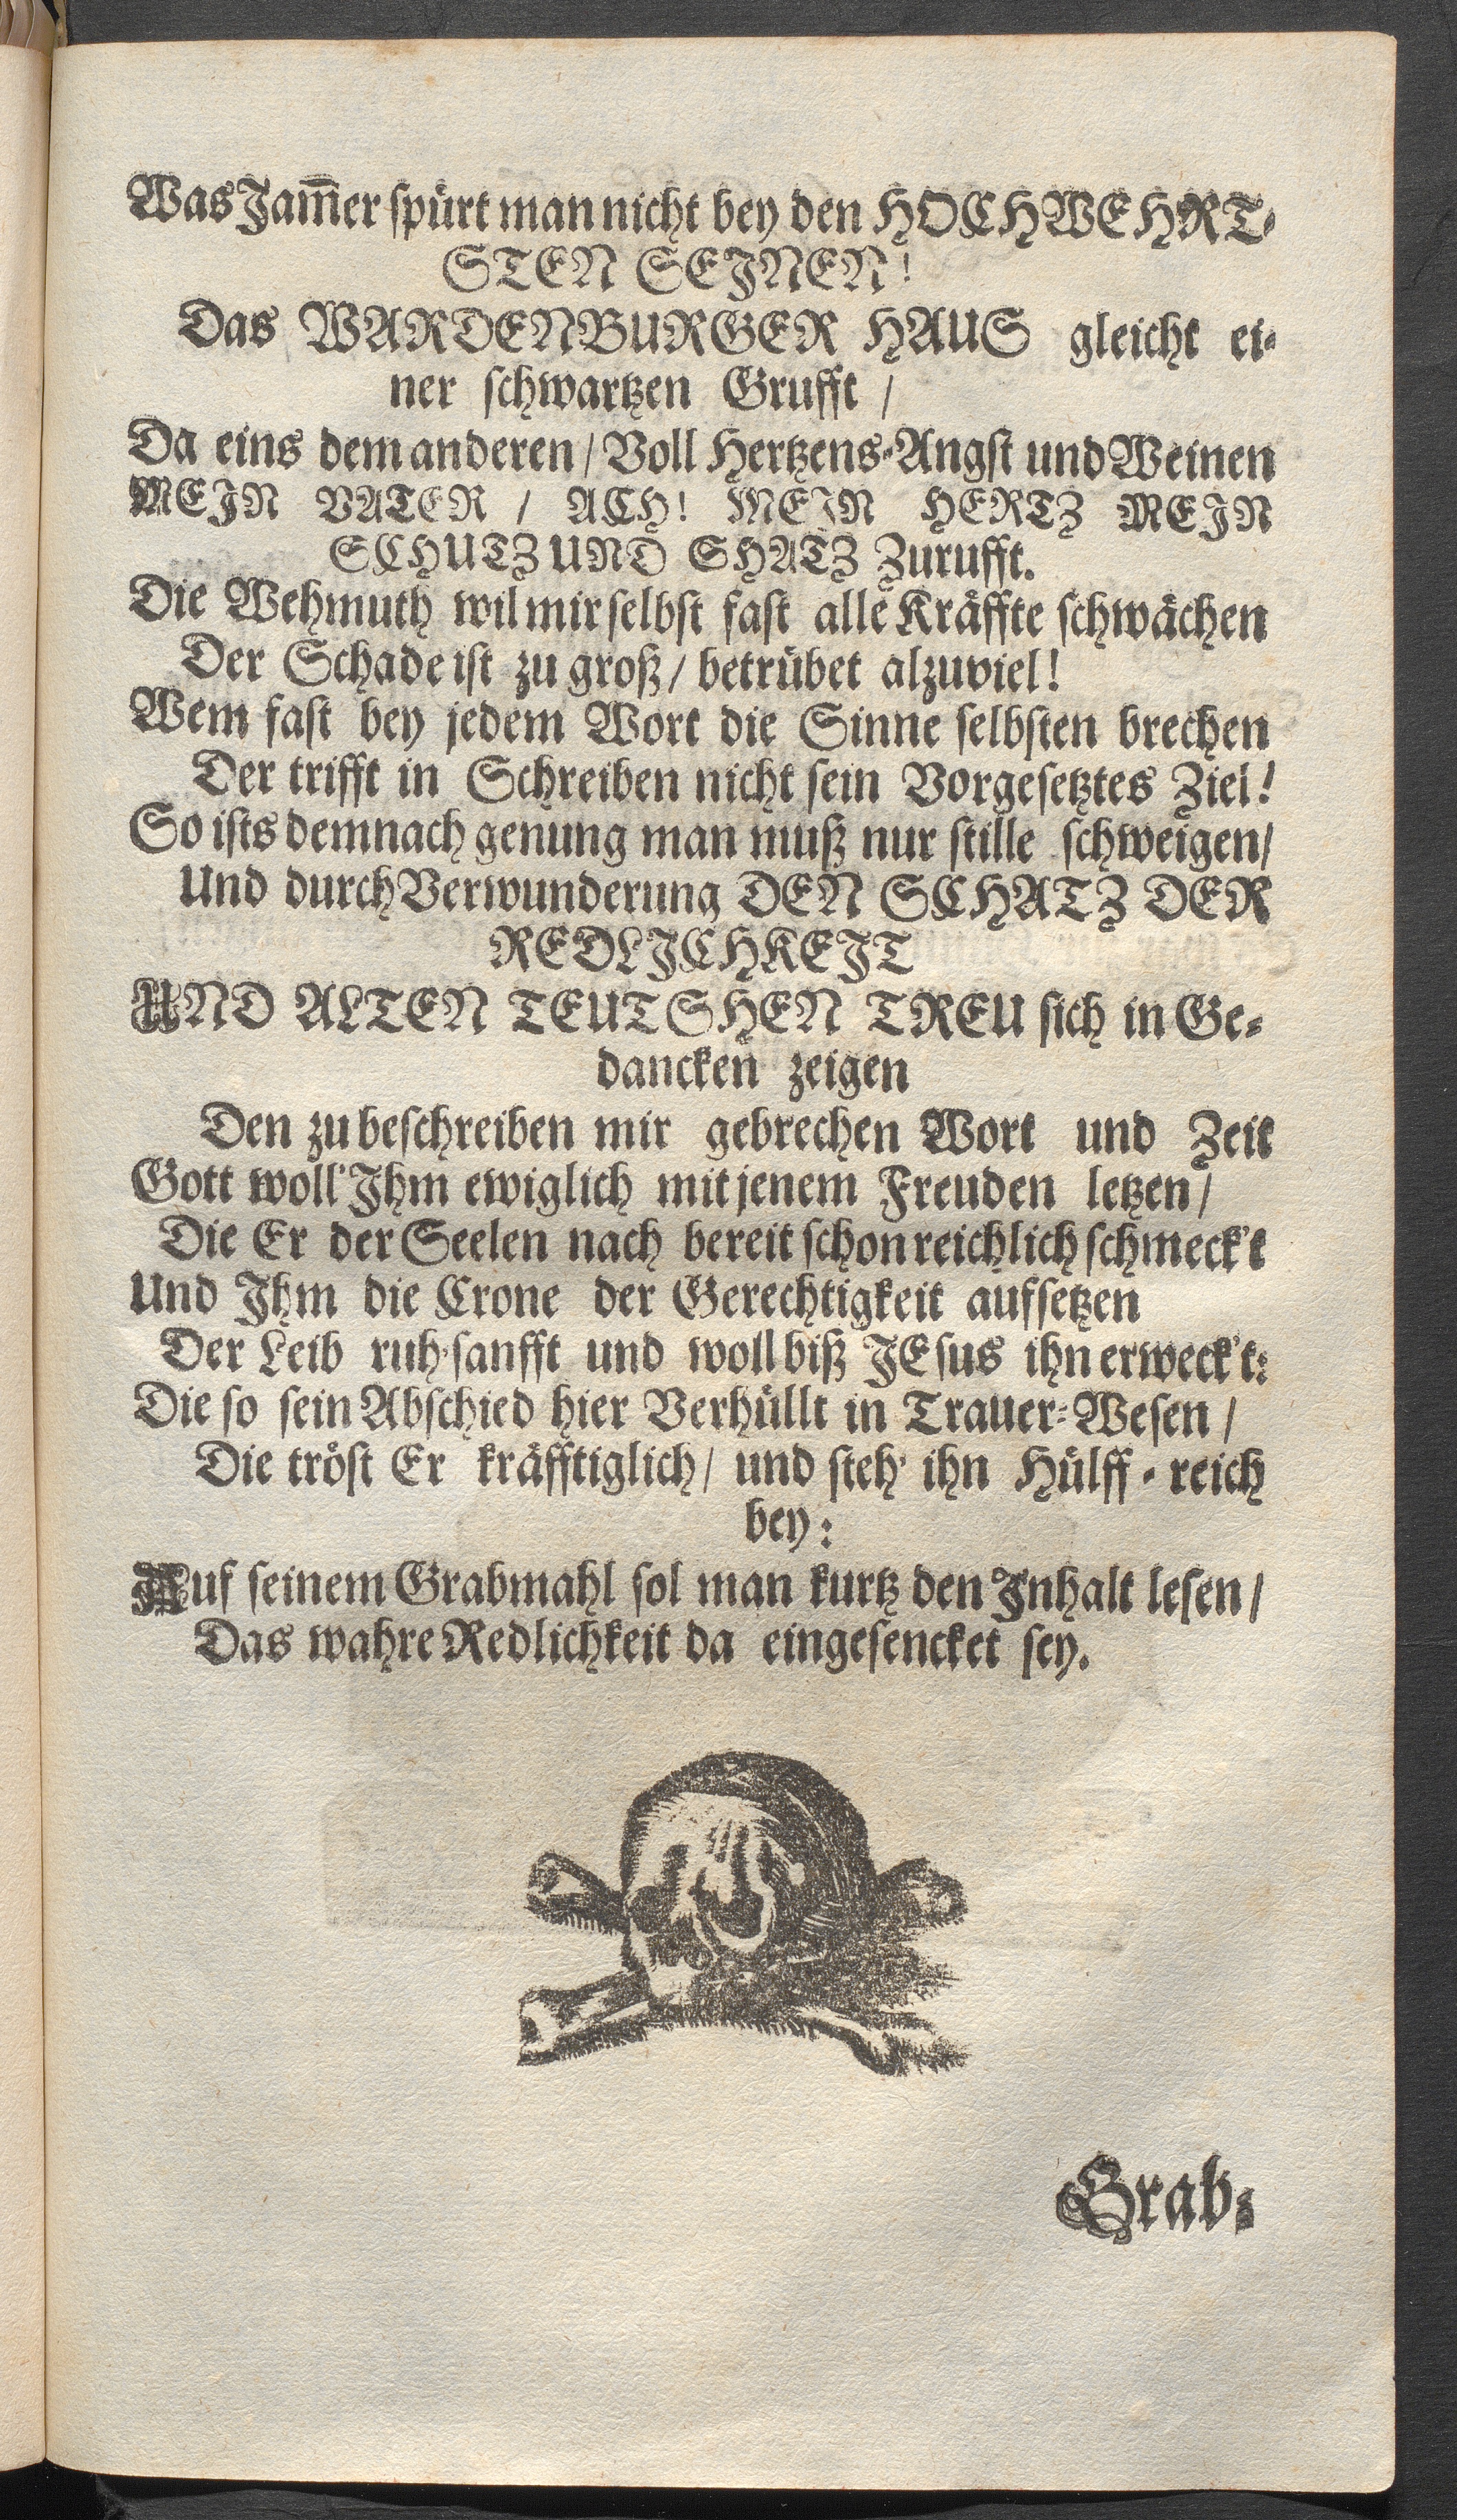 Was Jam̄er spürt man nicht bey den HOCHWEHRT-
STEN SEJNEN!
Das WARDENBURGER HAUS gleicht ei-
ner schwartzen Grufft /
Da eins dem anderen / Voll Hertzens-Angst und Weinen
MEJN VATER / ACH! MEJN HERTZ MEJN
SCHUTZ UND SHATZ Zurufft.
Die Wehmuth wil mir selbst fast alle Kräffte schwächen
Der Schade ist zu groß / betrübet alzuviel!
Wem fast bey jedem Wort die Sinne selbsten brechen
Der trifft in Schreiben nicht sein Vorgesetztes Ziel!
So ists demnach genung man muß nur stille schweigen /
Und durch Verwunderung DEN SCHATZ DER
REDLJCHKEJT
UND ALTEN TEUTSHEN TREU sich in Ge-
dancken zeigen
Den zu beschreiben mir gebrechen Wort und Zeit
Gott woll' Jhm ewiglich mit jenem Freuden letzen /
Die Er der Seelen nach bereit schon reichlich schmeck't
Und Jhm die Crone der Gerechtigkeit aufsetzen
Der Leib ruh' sanfft und woll biß JEsus ihn erweck't:
Die so sein Abschied hier Verhüllt in Trauer-Wesen /
Die tröst Er kräfftiglich / und steh' ihn Hülff-reich
bey:
Auf seinem Grabmahl sol man kurtz den Jnhalt lesen /
Das wahre Redlichkeit da eingesencket sey.
Grab-